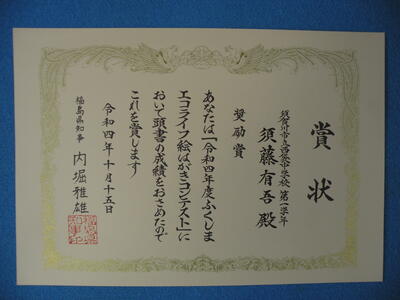 賞状
須賀川市立西袋中学校 第一学年
須藤有吾殿
奨励賞
あなたは「令和四年度ふくしま
エコライフ絵はがきコンテスト」に
おいて頭書の成績をおさめたので
これを賞します
令和四年十月十五日
福島県知事 内堀雅雄